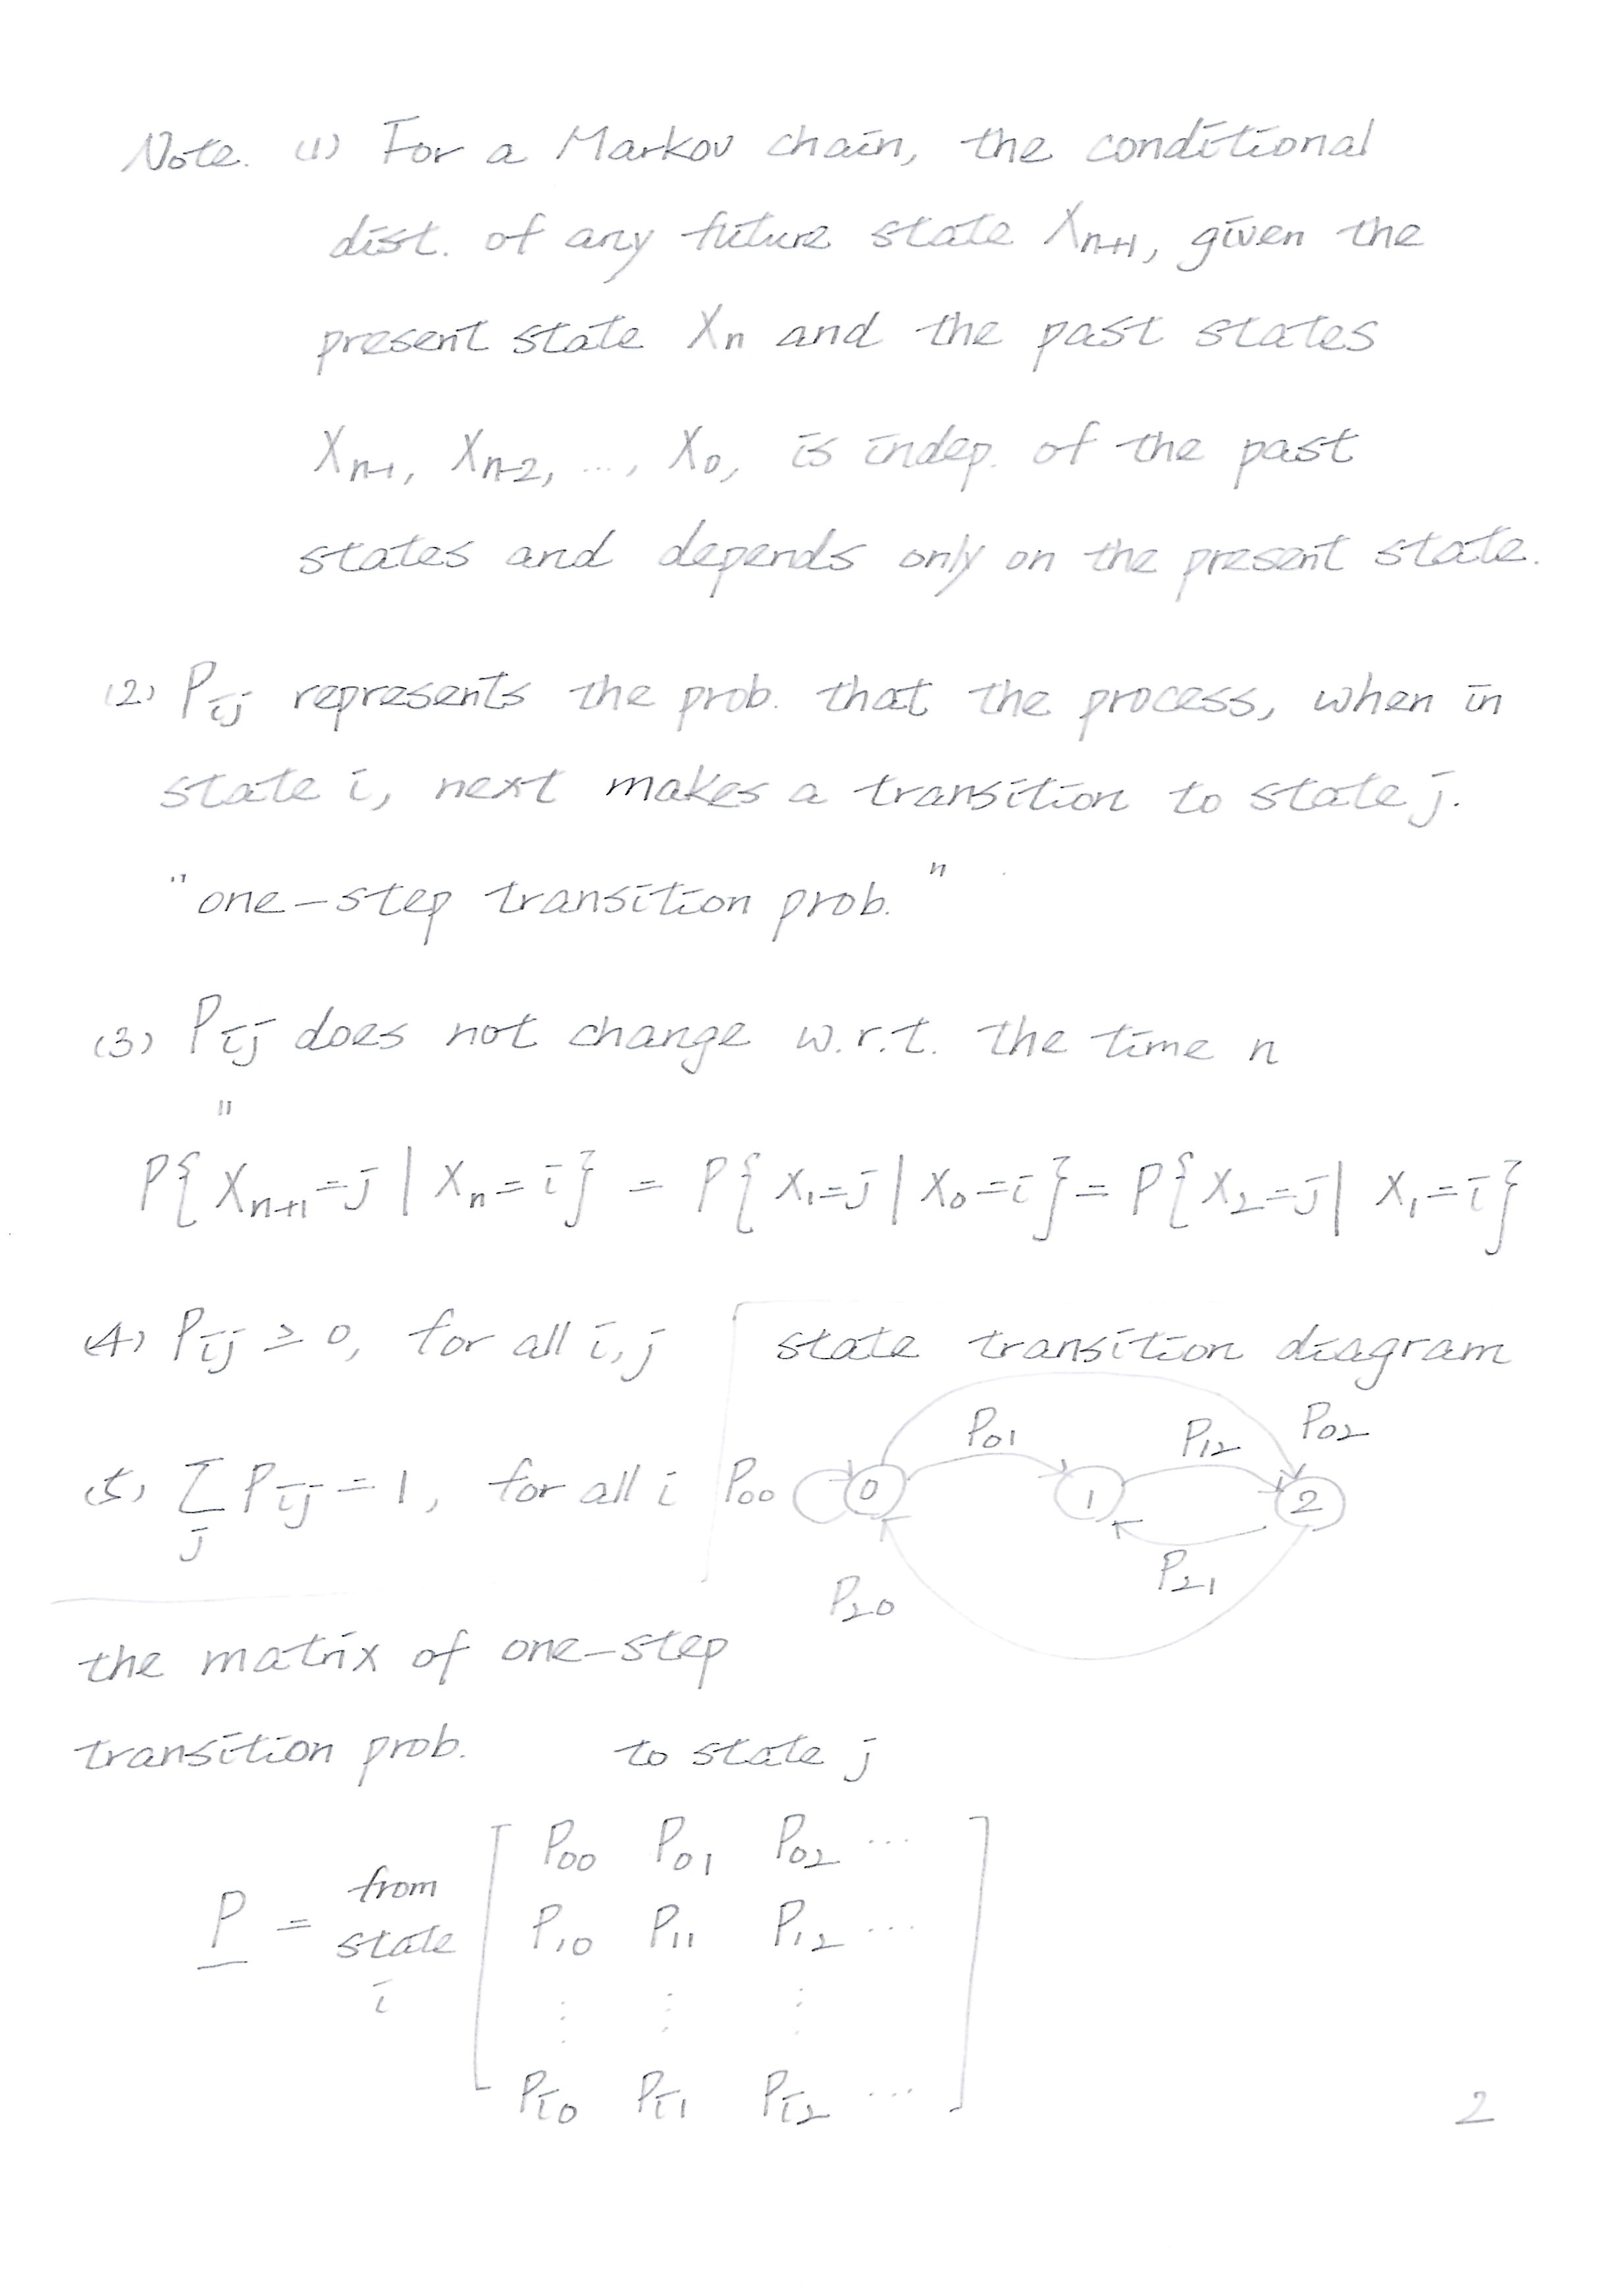 Note. (1) For a Markov chain, the conditional
dist. of any future state Xn+1, given the
present state Xn and the past states
Xn-1, Xn-2, ..., X0, is indep. of the past
states and depends only on the present state.
(2) Pij represents the prob. that the process, when in
state i, next makes a transition to state j.
"one-step transition prob."
(3) Pij does not change w.r.t. the time n
"
P{Xn+1=j | Xn=i} = P{X1=j | X0=i} = P{X2=j | X1=i}
(4) Pij ≥ 0, for all i,j
(5) Σj Pij = 1, for all i
state transition diagram
P01 P12 P02
P00 0 1 2
P21
P20
the matrix of one-step
transition prob.
to state j
P = from state i
P00 P01 P02 ...
P10 P11 P12 ...
⋮ ⋮ ⋮
Pi0 Pi1 Pi2 ...
2